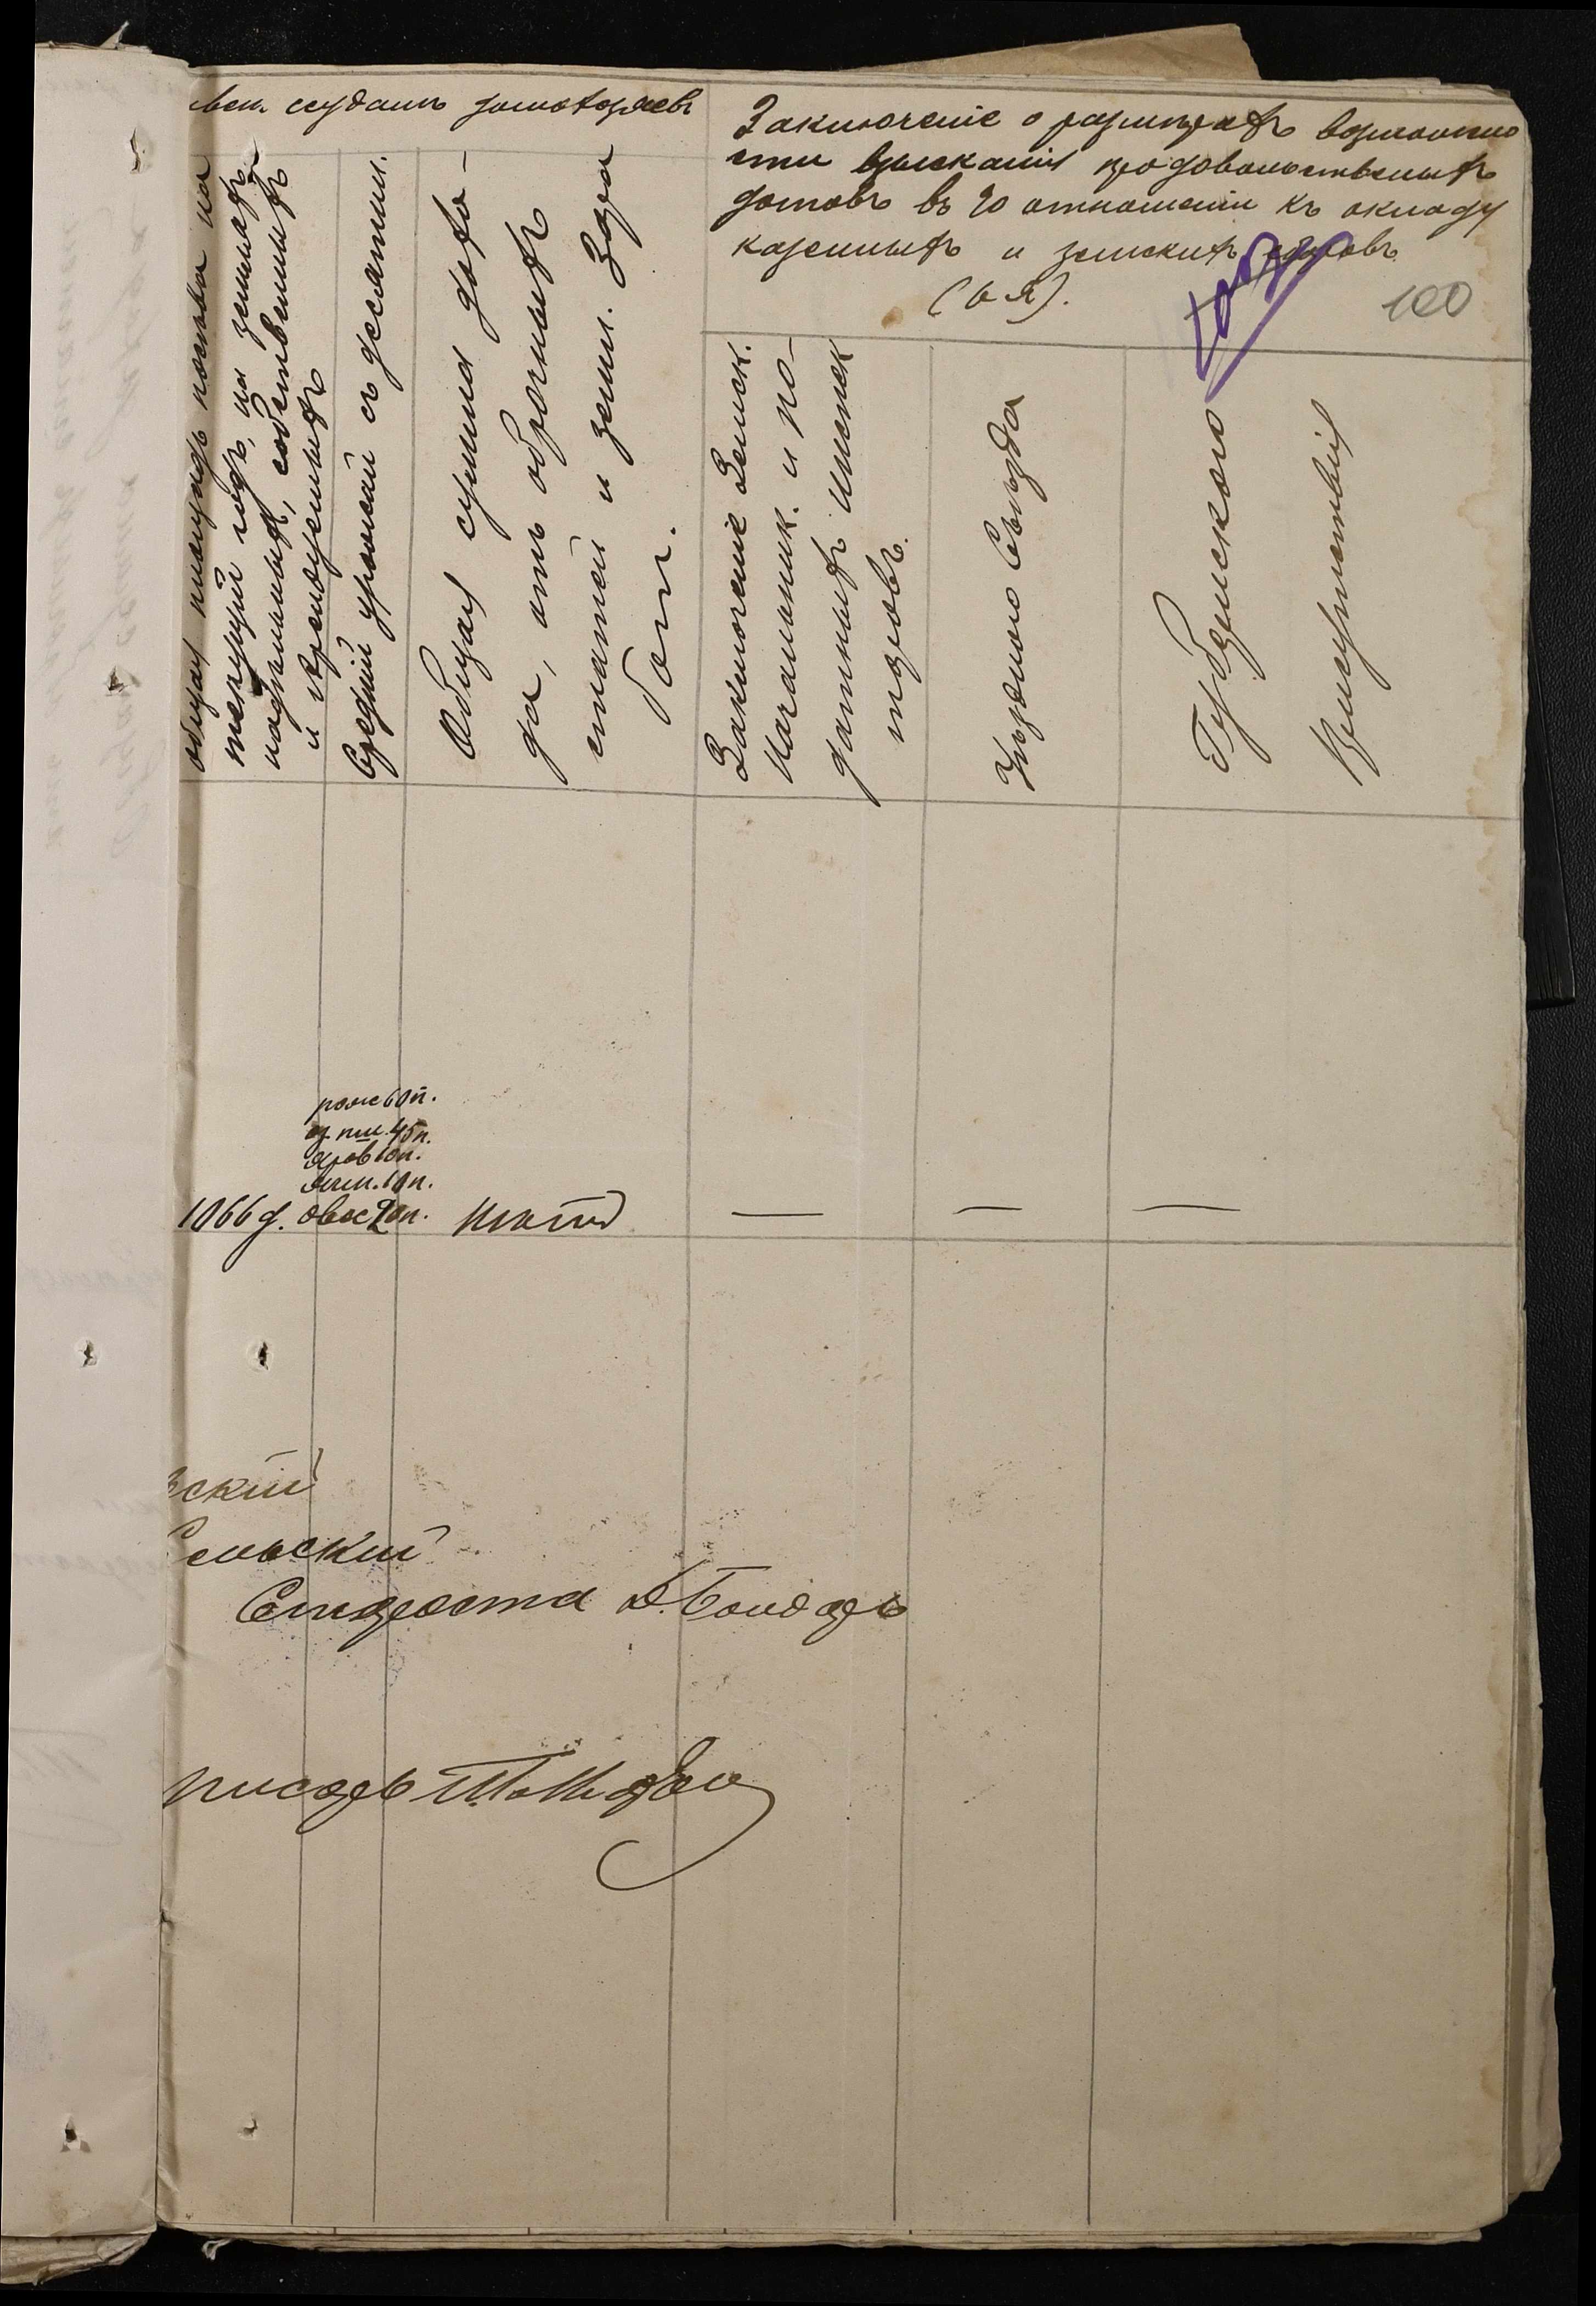 вен. ссудамъ
Заключеніе о размѣрахъ возможно
сти взысканія продовольственныхъ
долговъ въ % отношеніи къ окладу
казенныхъ и земскихъ сборовъ
(6-я).
100
общая площадь посѣва на
текущій годъ, на земляхъ
надѣльныхъ, собственныхъ
и арендуемыхъ
Средній урожай съ десятины.
Общая сумма дохо-
да, отъ оброчныхъ
статей и земл. Зара
бот.
Заключеніе Земск.
Начальник. и по-
датныхъ Инспек
торовъ.
Уѣзднаго Съѣзда
Губернскаго
Присутствія
рожь 60 п.
оз. пш. 45 п.
яров 60 п.
ячм. 60 п.
1066 д. овес 20 п.
вскій
Сельскій
Староста Д. Бондарь
писарь